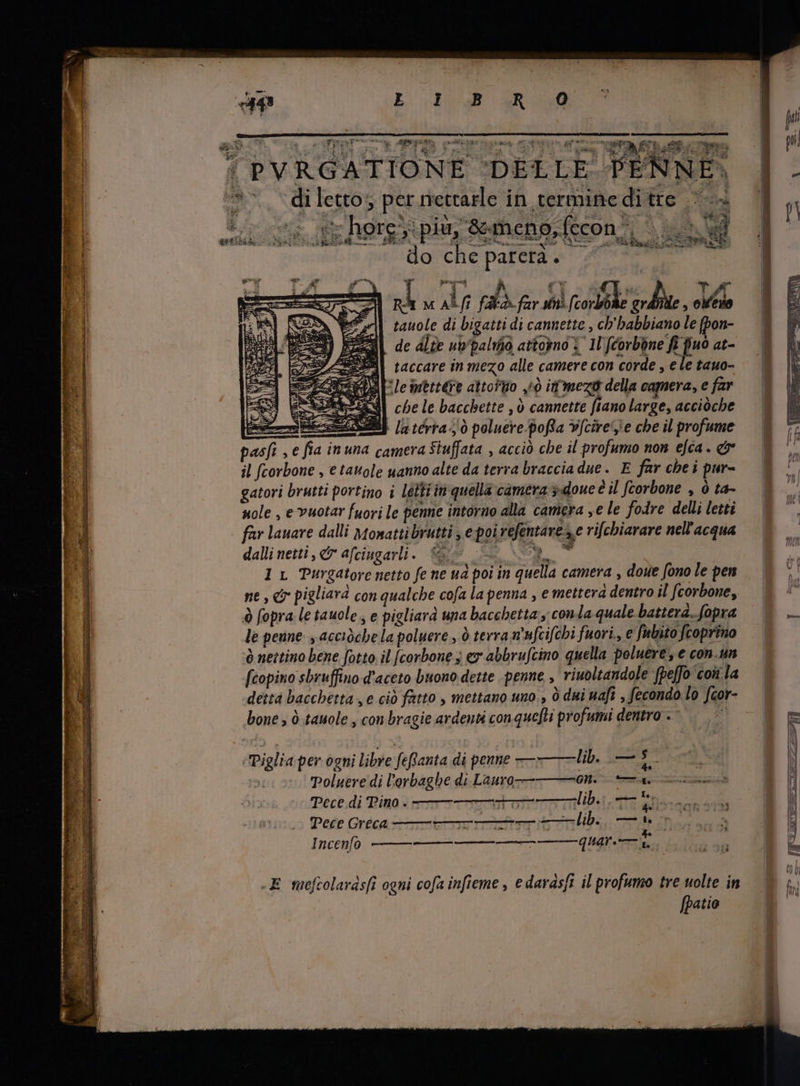 448 LIBRO
PVRGATIONE DELLE PENNE
di letto, per nettarle in termine di tre
hore, più, & meno, secon
do che parerà.
RA M alſi farà far vn ſcorbone grande, overo
tauole di bigatti di cannette, ch'habbiano le ſpon-
de alte un palmo attorno; Il ſcorbone ſi può at-
taccare in mezo alle camere con corde, e le tauo-
le mettere attorno, ò in mezo della camera, e far
che le bacchette, ò cannette ſiano large, acciòche
la terra, ò poluere poſſa vſcire, e che il profume
paſſi, e ſia in una camera Stuffata, acciò che il profumo non eſca. &
il ſcorbone, e tauole uanno alte da terra braccia due. E far che i pur-
gatori brutti portino i letti in quella camera, doue è il ſcorbone, ò ta-
uole, e vuotar fuori le penne intorno alla camera, e le fodre delli letti
far lauare dalli Monatti brutti, e poi reſentare, e riſchiarare nell'acqua
dalli netti, & aſciugarli.
IL Purgatore netto ſe ne uà poi in quella camera, doue ſono le pen
ne, & pigliarà con qualche coſa la penna, e metterà dentro il ſcorbone,
ò ſopra le tauole, e pigliarà una bacchetta, con la quale batterà ſopra
le penne, acciòche la poluere, ò terra n'uſciſchi fuori, e ſubito ſcoprino
ò nettino bene ſotto il ſcorbone; & abbruſcino quella poluere, e con un
ſcopino sbruffino d'aceto buono dette penne, riuoltandole ſpeſſo con la
detta bacchetta, e ciò fatto, mettano uno, ò dui uaſi, ſecondo lo ſcor-
bone, ò tauole, con bragie ardenti con queſti profumi dentro.
Piglia per ogni libre ſeſſanta di penne — lib. —
Poluere di l'orbaghe di Lauro — on. —
Pece di Pino. — lib. —
Pece Greca — lib. —
Incenſo — quar. —
E meſcolaràsſi ogni coſa inſieme, e daràsſi il profumo tre uolte in
ſpatio